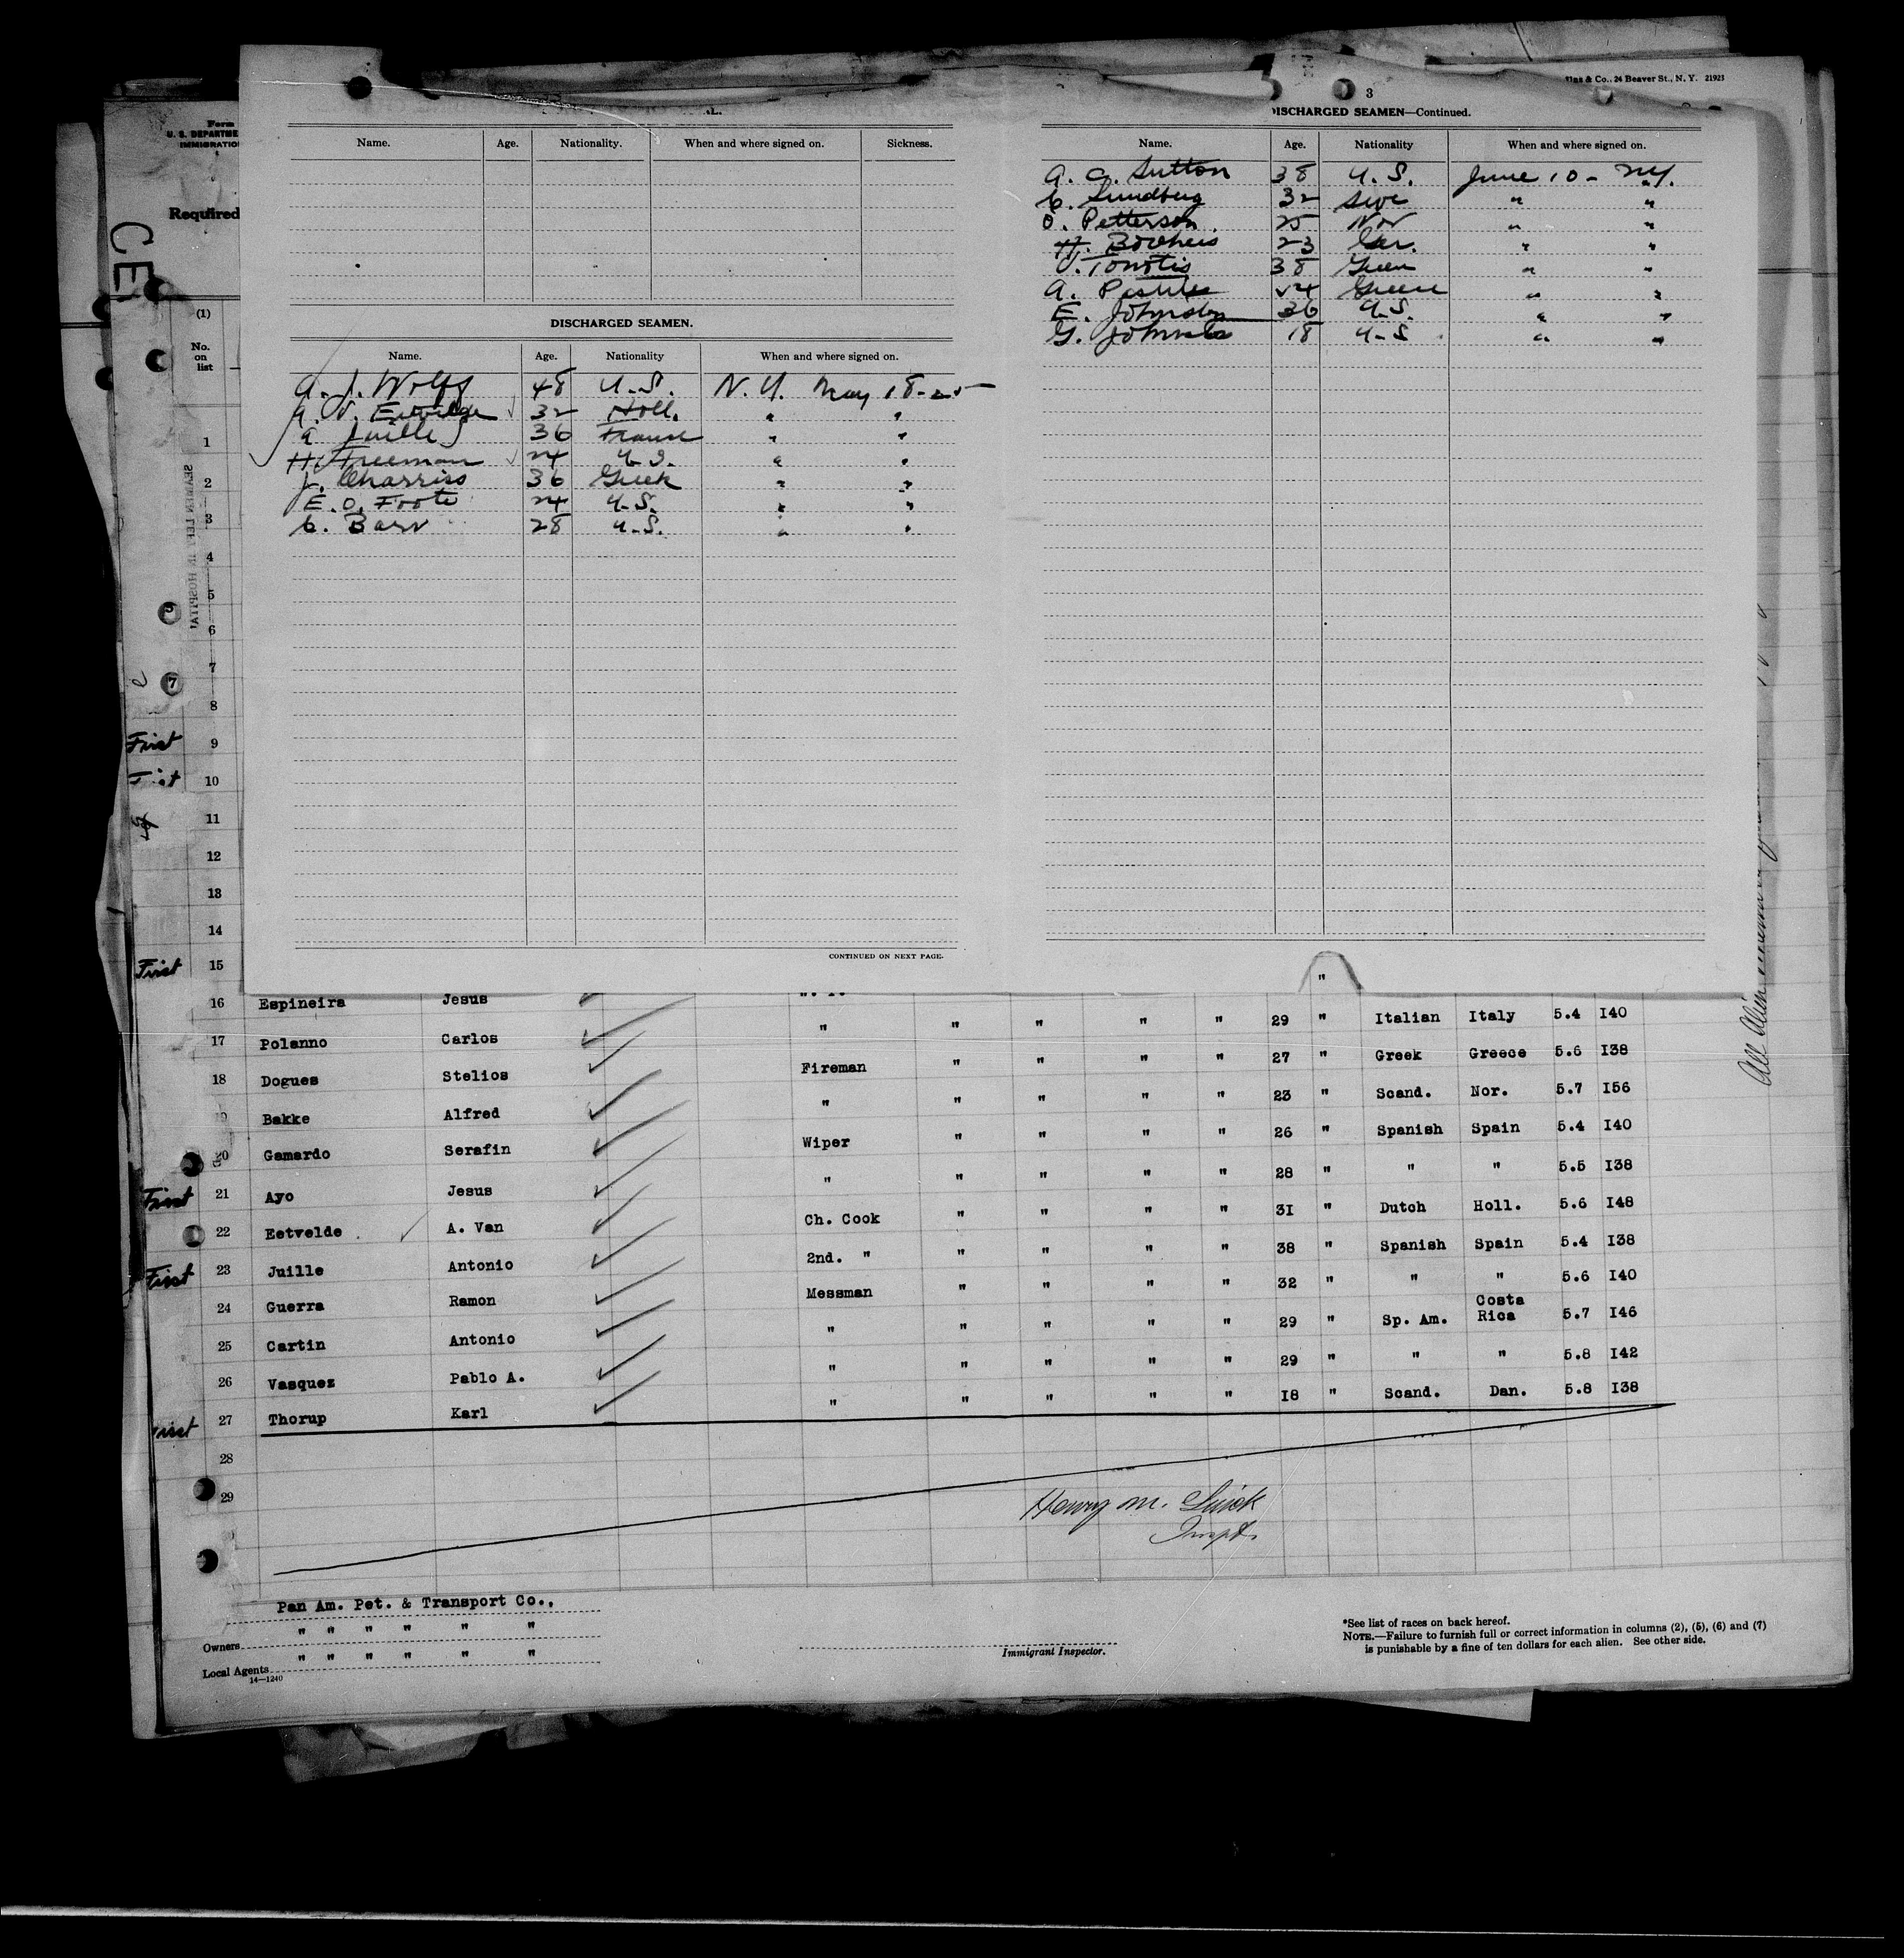 Form
U. S. DEPARTME
IMMIGRATIO
Required
CE
(1)
No.
on
list
1
2
3
4
5
6
7
8
First 9
10
11
12
13
14
First 15
Name. Age. Nationality. When and where signed on. Sickness.
DISCHARGED SEAMEN.
Name. Age. Nationality When and where signed on.
A. J. Wolff 48 U.S. N.Y. May 18-25
A. V. Eetvelde 32 Holl. " "
A Juille 36 France " "
H. Freeman 24 U.S. " "
J. Charriss 36 Greek " "
E. O. Foote 24 U.S. " "
C. Barr 28 U.S. " "
CONTINUED ON NEXT PAGE.
& Co., 24 Beaver St., N. Y. 21923
3
DISCHARGED SEAMEN—Continued.
Name. Age. Nationality When and where signed on.
A. C. Sutton 38 U.S. June 10 - NY.
C. Sundberg 32 Swe " "
O. Petterson 25 Nor " "
H. 23 Ger. " "
38 Greek " "
A. 24 Greece " "
E. Johnston 36 U.S. " "
G. 18 U.S " "
All Alien
"
16 Espineira Jesus
17 Polanno Carlos " " " " " 29 " Italian Italy 5.4 I40
18 Dogues Stelios Fireman " " " " 27 " Greek Greece 5.6 I38
19 Bakke Alfred " " " " " 23 " Scand. Nor. 5.7 I56
20 Gamardo Serafin Wiper " " " " 26 " Spanish Spain 5.4 I40
First 21 Ayo Jesus " " " " " 28 " " " 5.5 I38
22 Eetvelde A. Van Ch. Cook " " " " 31 " Dutch Holl. 5.6 I48
First 23 Juille Antonio 2nd. " " " " " 38 " Spanish Spain 5.4 I38
24 Guerra Ramon Messman " " " " 32 " " " 5.6 I40
25 Cartin Antonio " " " " " 29 " Sp. Am. Costa Rica 5.7 I46
26 Vasquez Pablo A. " " " " " 29 " " " 5.8 I42
First 27 Thorup Karl " " " " " 18 " Scand. Dan. 5.8 I38
28
29
Henry M.
Inspt.
Pan Am. Pet. & Transport Co.,
Owners " " " " " "
Local Agents " " " " " "
14—1240
Immigrant Inspector.
*See list of races on back hereof.
NOTE.—Failure to furnish full or correct information in columns (2), (5), (6) and (7)
is punishable by a fine of ten dollars for each alien. See other side.